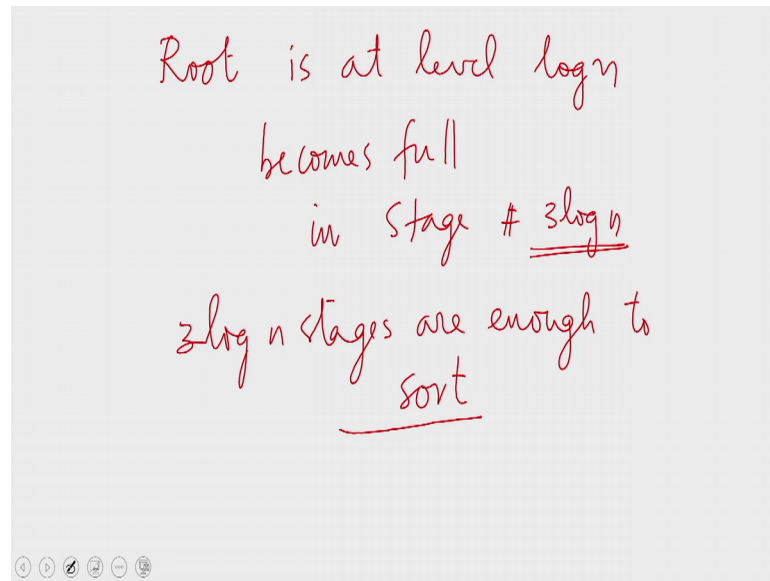 Root is at level log n
becomes full
in stage # 3log n
3log n stages are enough to
sort